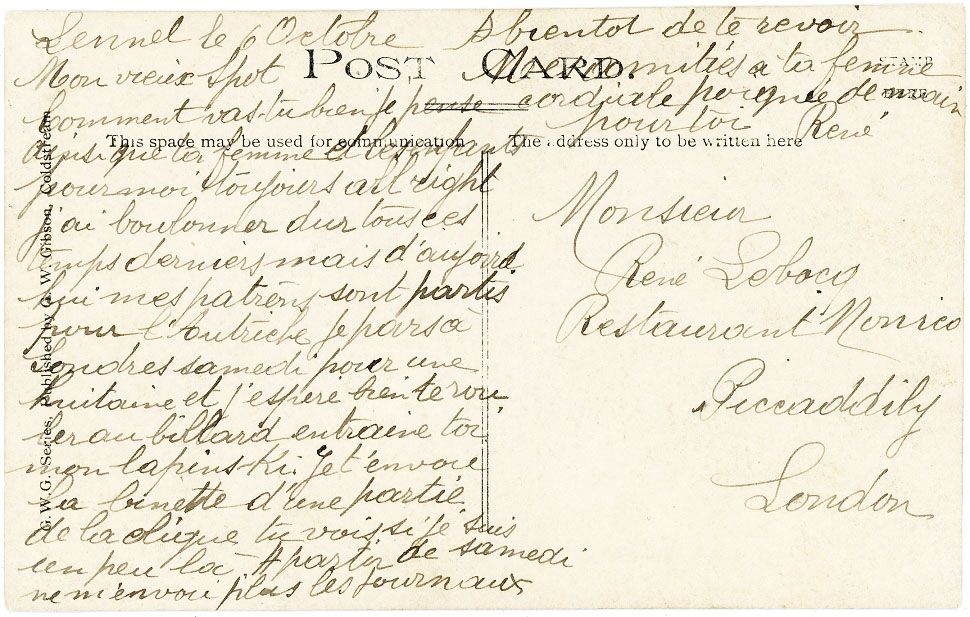 Lennel le 6 Octobre
Mon vieux Spot
Comment vas-tu bien je pense
ainsi que ta femme et les enfants
pour moi toujours all right
j'ai boulonner dur tous ces
temps derniers mais d'aujourd
hui mes patrons sont partis
pour l'Autriche je pars à
Londres samedi pour une
huitaine et j'espère bien te rou
ler au billard entraine toi
mon lapinski. Je t'envoie
la binette d'une partie
de la clique tu vois si je suis
un peu là A partir de samedi
ne m'envoi plus les journaux
A bientot de te revoir
Mes amitiés à ta femme
cordiale poignée de main
pour toi René
POST CARD.
STAMP
HERE
This space may be used for communication
The address only to be written here
G.W.G. Series, Published by G. W. Gibson, Coldstream
Monsieur
René Lebocq
Restaurant Monico
Piccaddily
London